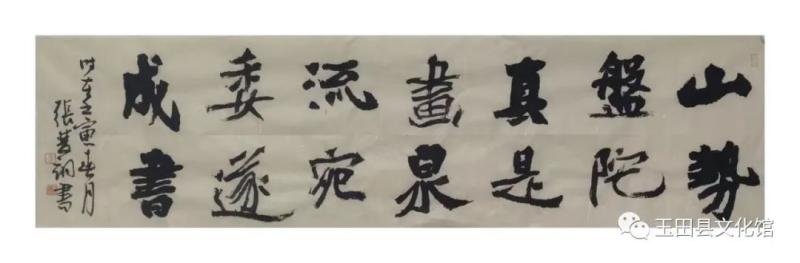 山勢
盤陀
真是
畫泉
流宛
委遂
成書
時在壬寅春月
張
書
玉田县文化馆